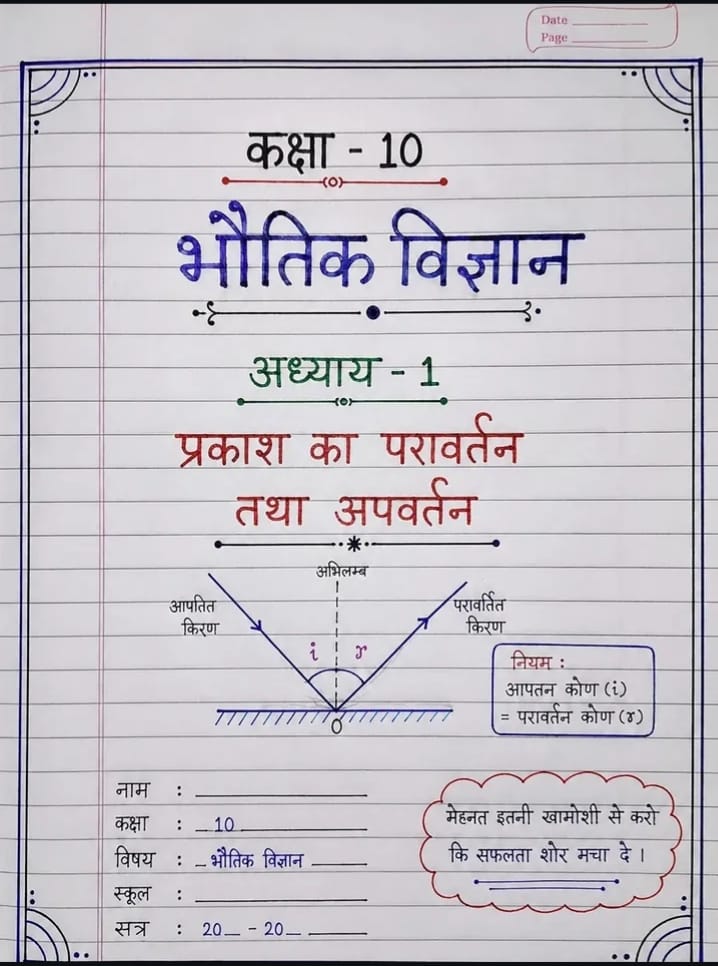 Date ________
Page ________
कक्षा - 10
भौतिक विज्ञान
अध्याय - 1
प्रकाश का परावर्तन
तथा अपवर्तन
अभिलम्ब
आपतित
किरण
परावर्तित
किरण
i r
O
नियम :
आपतन कोण (i)
= परावर्तन कोण (r)
नाम : ________
कक्षा : 10
विषय : भौतिक विज्ञान
स्कूल : ________
सत्र : 20__ - 20__
मेहनत इतनी खामोशी से करो
कि सफलता शोर मचा दे ।